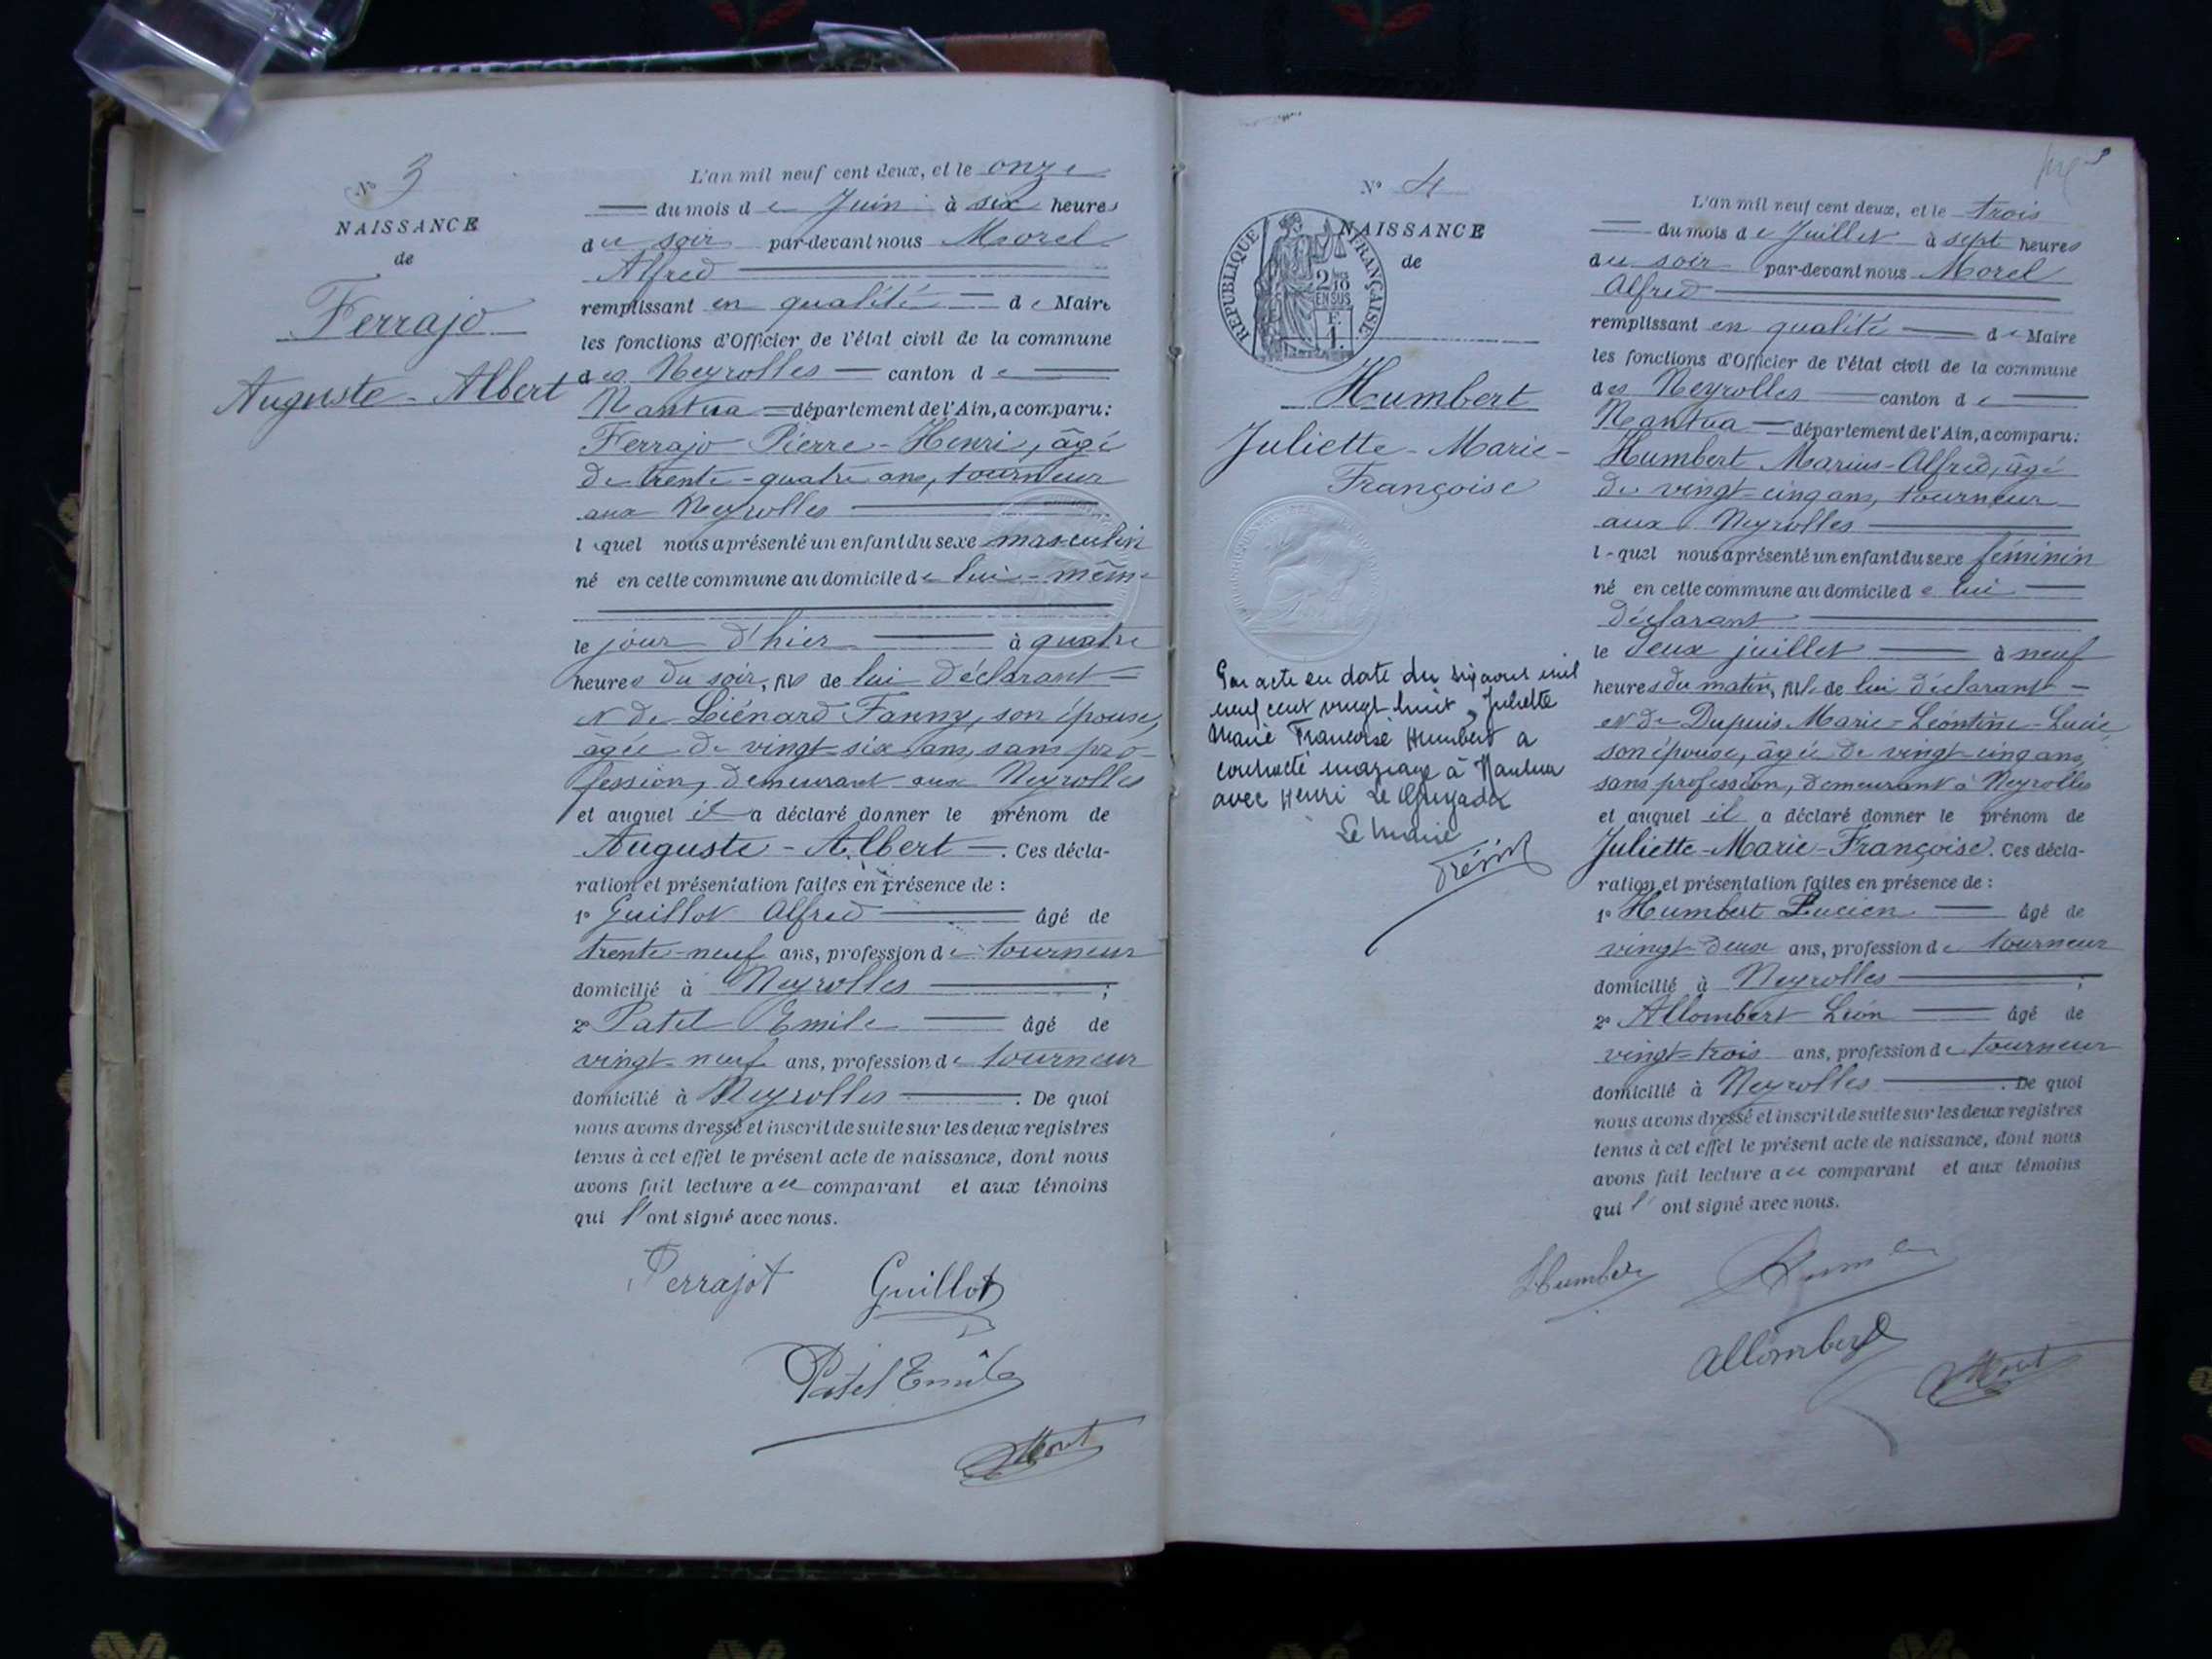 N° 3
NAISSANCE
de
Ferrajo
Auguste - Albert
L'an mil neuf cent deux, et le onze
du mois de Juin à six heures
du soir par-devant nous Morel
Alfred
remplissant en qualité de Maire
les fonctions d'Officier de l'état civil de la commune
des Neyrolles canton de
Nantua département de l'Ain, a comparu:
Ferrajo Pierre-Henri, âgé
de trente-quatre ans, tourneur
aux Neyrolles
lequel nous a présenté un enfant du sexe masculin
né en cette commune au domicile de lui-même
le jour d'hier à quatre
heures du soir, fils de lui déclarant
et de Liénard Fanny, son épouse,
âgée de vingt-six ans, sans pro-
fession, demeurant aux Neyrolles
et auquel il a déclaré donner le prénom de
Auguste - Albert. Ces décla-
ration et présentation faites en présence de :
1° Guillot Alfred âgé de
trente-neuf ans, profession de tourneur
domicilié à Neyrolles ;
2° Patel Emile âgé de
vingt-neuf ans, profession de tourneur
domicilié à Neyrolles. De quoi
nous avons dressé et inscrit de suite sur les deux registres
tenus à cet effet le présent acte de naissance, dont nous
avons fait lecture au comparant et aux témoins
qui l'ont signé avec nous.
Ferrajot Guillot
Patel Emile
N° 4
NAISSANCE
de
REPUBLIQUE FRANÇAISE
2/10
EN SUS
F.
1.
Humbert
Juliette - Marie -
Françoise
Par acte en date du six aout mil
neuf cent vingt huit, Juliette
Marie Francoise Humbert a
contracté mariage à Nantua
avec Henri Le Guyader
Le Maire
L'an mil neuf cent deux, et le trois
du mois de Juillet à sept heures
du soir par-devant nous Morel
Alfred
remplissant en qualité de Maire
les fonctions d'Officier de l'état civil de la commune
des Neyrolles canton de
Nantua département de l'Ain, a comparu:
Humbert Marius-Alfred, âgé
de vingt-cinq ans, tourneur
aux Neyrolles
lequel nous a présenté un enfant du sexe féminin
né en cette commune au domicile de lui
déclarant
le deux juillet à neuf
heures du matin, fille de lui déclarant
et de Dupuis Marie-Léontine-Lucie
son épouse, âgée de vingt-cinq ans,
sans profession, demeurant à Neyrolles
et auquel il a déclaré donner le prénom de
Juliette-Marie-Françoise. Ces décla-
ration et présentation faites en présence de :
1° Humbert Lucien âgé de
vingt-deux ans, profession de tourneur
domicilié à Neyrolles ;
2° Allombert Léon âgé de
vingt-trois ans, profession de tourneur
domicilié à Neyrolles. De quoi
nous avons dressé et inscrit de suite sur les deux registres
tenus à cet effet le présent acte de naissance, dont nous
avons fait lecture au comparant et aux témoins
qui l'ont signé avec nous.
Humbert
Allombert